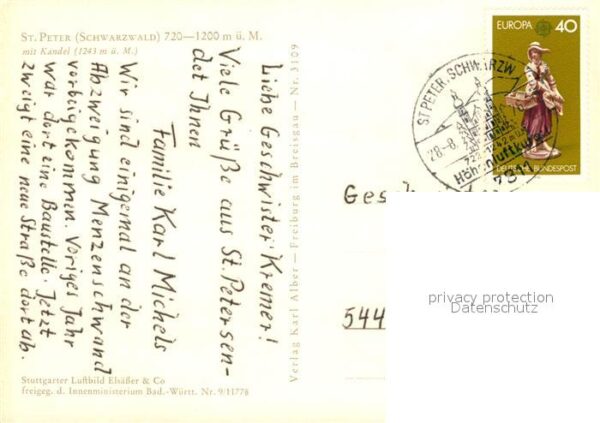 ST. PETER (SCHWARZWALD) 720—1200 m ü. M.
mit Kandel (1243 m ü. M.)
Liebe Geschwister Kremer!
Viele Grüße aus St. Petersen-
det Ihnen
Familie Karl Michels
Wir sind einigemal an der
Abzweigung Menzenschwand
vorbeigekommen. Voriges Jahr
war dort eine Baustelle. Jetzt
zweigt eine neue Straße dort ab.
Stuttgarter Luftbild Elsäßer & Co
freigeg. d. Innenministerium Bad.-Württ. Nr. 9/11778
Verlag Karl Alber — Freiburg im Breisgau — Nr. 3109
EUROPA 40
DEUTSCHE BUNDESPOST
ST PETER, SCHWARZW
28-8.
Höhenluftkur
7811
Gesch
544
privacy protection
Datenschutz